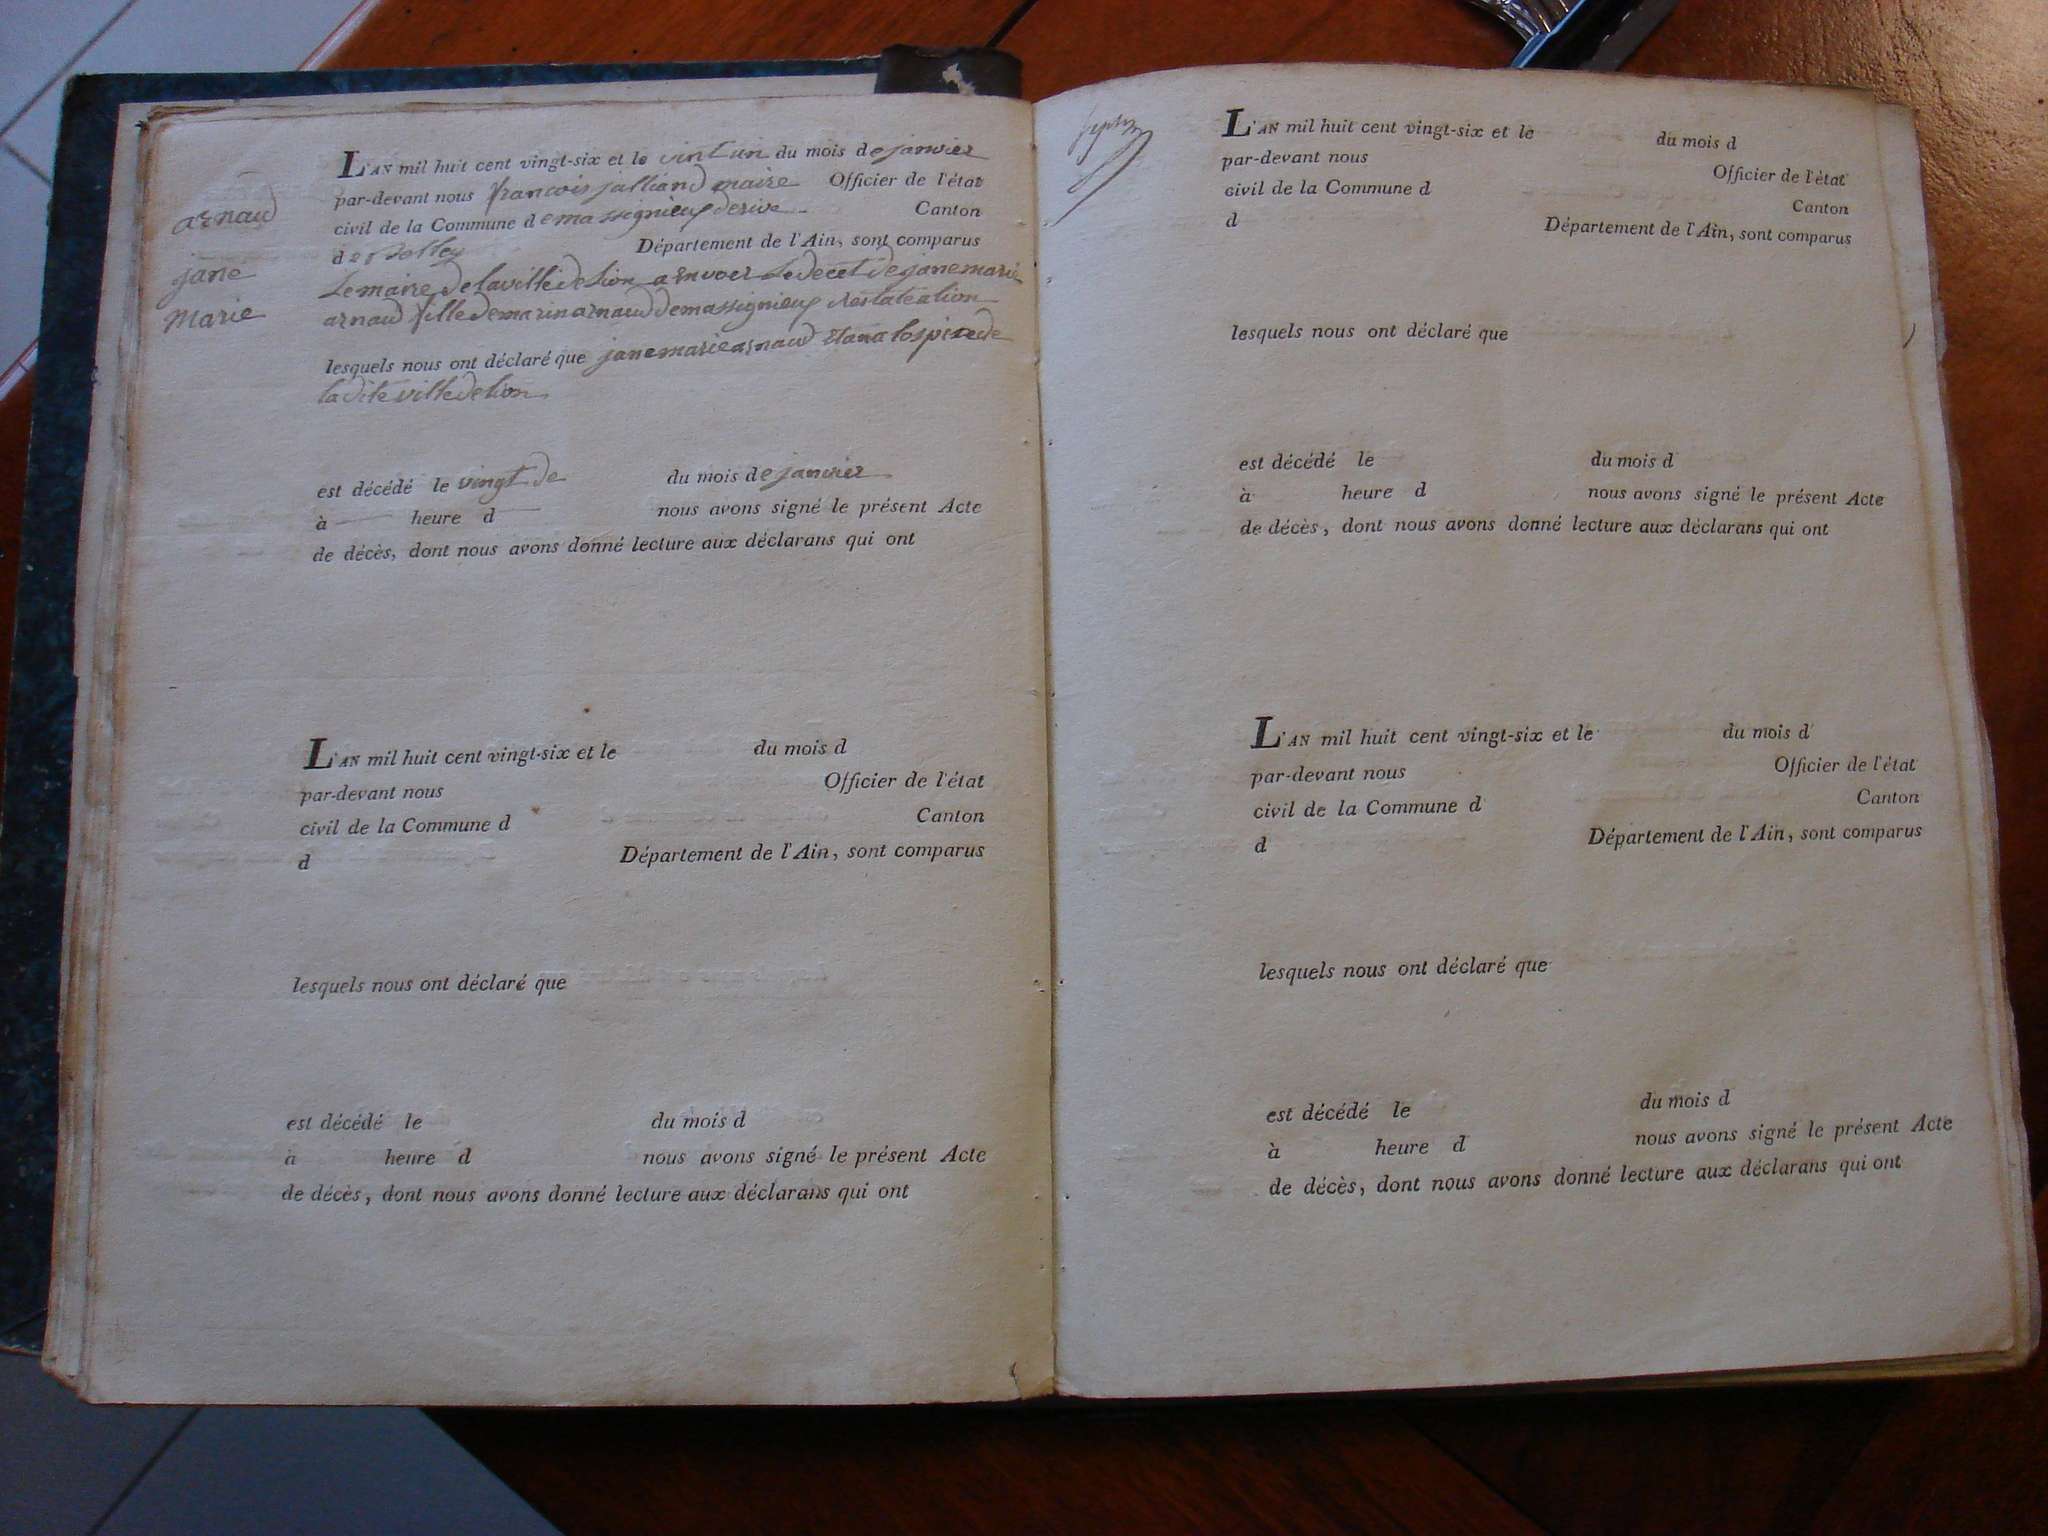 arnaud
jane
marie
L'AN mil huit cent vingt-six et le vint un du mois de janvier
par-devant nous francois jalliand maire Officier de l'état
civil de la Commune de massignieux derive Canton
de Belley Département de l'Ain, sont comparus
Le maire de la ville de lion a envoer Le decet de jane marie
arnaud fille de marin arnaud de massignieux
lesquels nous ont déclaré que jane marie arnaud
la dite ville de lion
est décédé le vingt de du mois de janvier
à heure d nous avons signé le présent Acte
de décès, dont nous avons donné lecture aux déclarans qui ont
L'AN mil huit cent vingt-six et le du mois d
par-devant nous Officier de l'état
civil de la Commune d Canton
d Département de l'Ain, sont comparus
lesquels nous ont déclaré que
est décédé le du mois d
à heure d nous avons signé le présent Acte
de décès, dont nous avons donné lecture aux déclarans qui ont
L'AN mil huit cent vingt-six et le du mois d
par-devant nous Officier de l'état
civil de la Commune d Canton
d Département de l'Ain, sont comparus
lesquels nous ont déclaré que
est décédé le du mois d
à heure d nous avons signé le présent Acte
de décès, dont nous avons donné lecture aux déclarans qui ont
L'AN mil huit cent vingt-six et le du mois d
par-devant nous Officier de l'état
civil de la Commune d Canton
d Département de l'Ain, sont comparus
lesquels nous ont déclaré que
est décédé le du mois d
à heure d nous avons signé le présent Acte
de décès, dont nous avons donné lecture aux déclarans qui ont